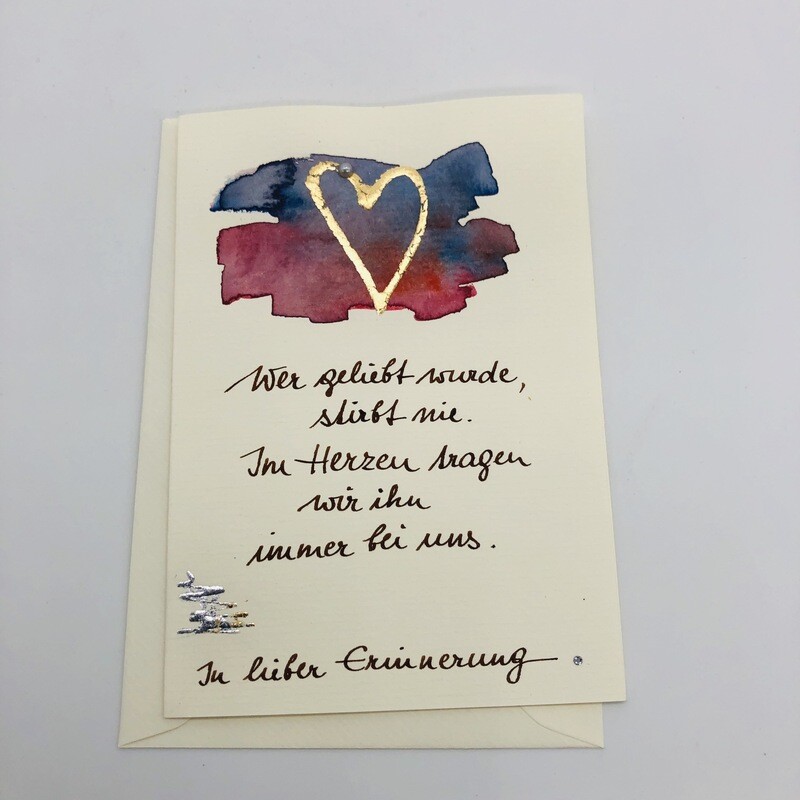 Wer geliebt wurde,
stirbt nie.
Im Herzen tragen
wir ihn
immer bei uns.
In lieber Erinnerung